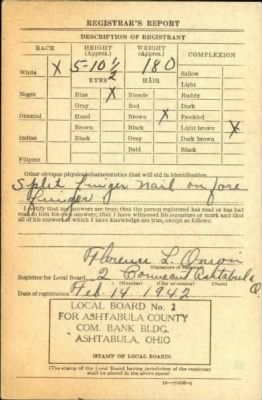 REGISTRAR'S REPORT
DESCRIPTION OF REGISTRANT
RACE HEIGHT (Approx.) WEIGHT (Approx.) COMPLEXION
White X 5-10 1/2 180 Sallow
EYES HAIR Light
Negro Blue X Blonde Ruddy
Gray Red Dark
Oriental Hazel Brown X Freckled
Brown Black Light brown X
Indian Black Gray Dark brown
Bald Black
Filipino
Other obvious physical characteristics that will aid in identification
Split finger nail on fore
finger
I certify that my answers are true; that the person registered has read or has had
read to him his own answers; that I have witnessed his signature or mark and that
all of his answers of which I have knowledge are true, except as follows:
Florence L.
(Signature of registrar)
Registrar for Local Board 2 Conneaut Ashtabula O.
(Number) (City or county) (State)
Date of registration Feb 14 1942
LOCAL BOARD No. 2
FOR ASHTABULA COUNTY
COM. BANK BLDG.
ASHTABULA, OHIO
(STAMP OF LOCAL BOARD)
(The stamp of the Local Board having jurisdiction of the registrant
shall be placed in the above space)